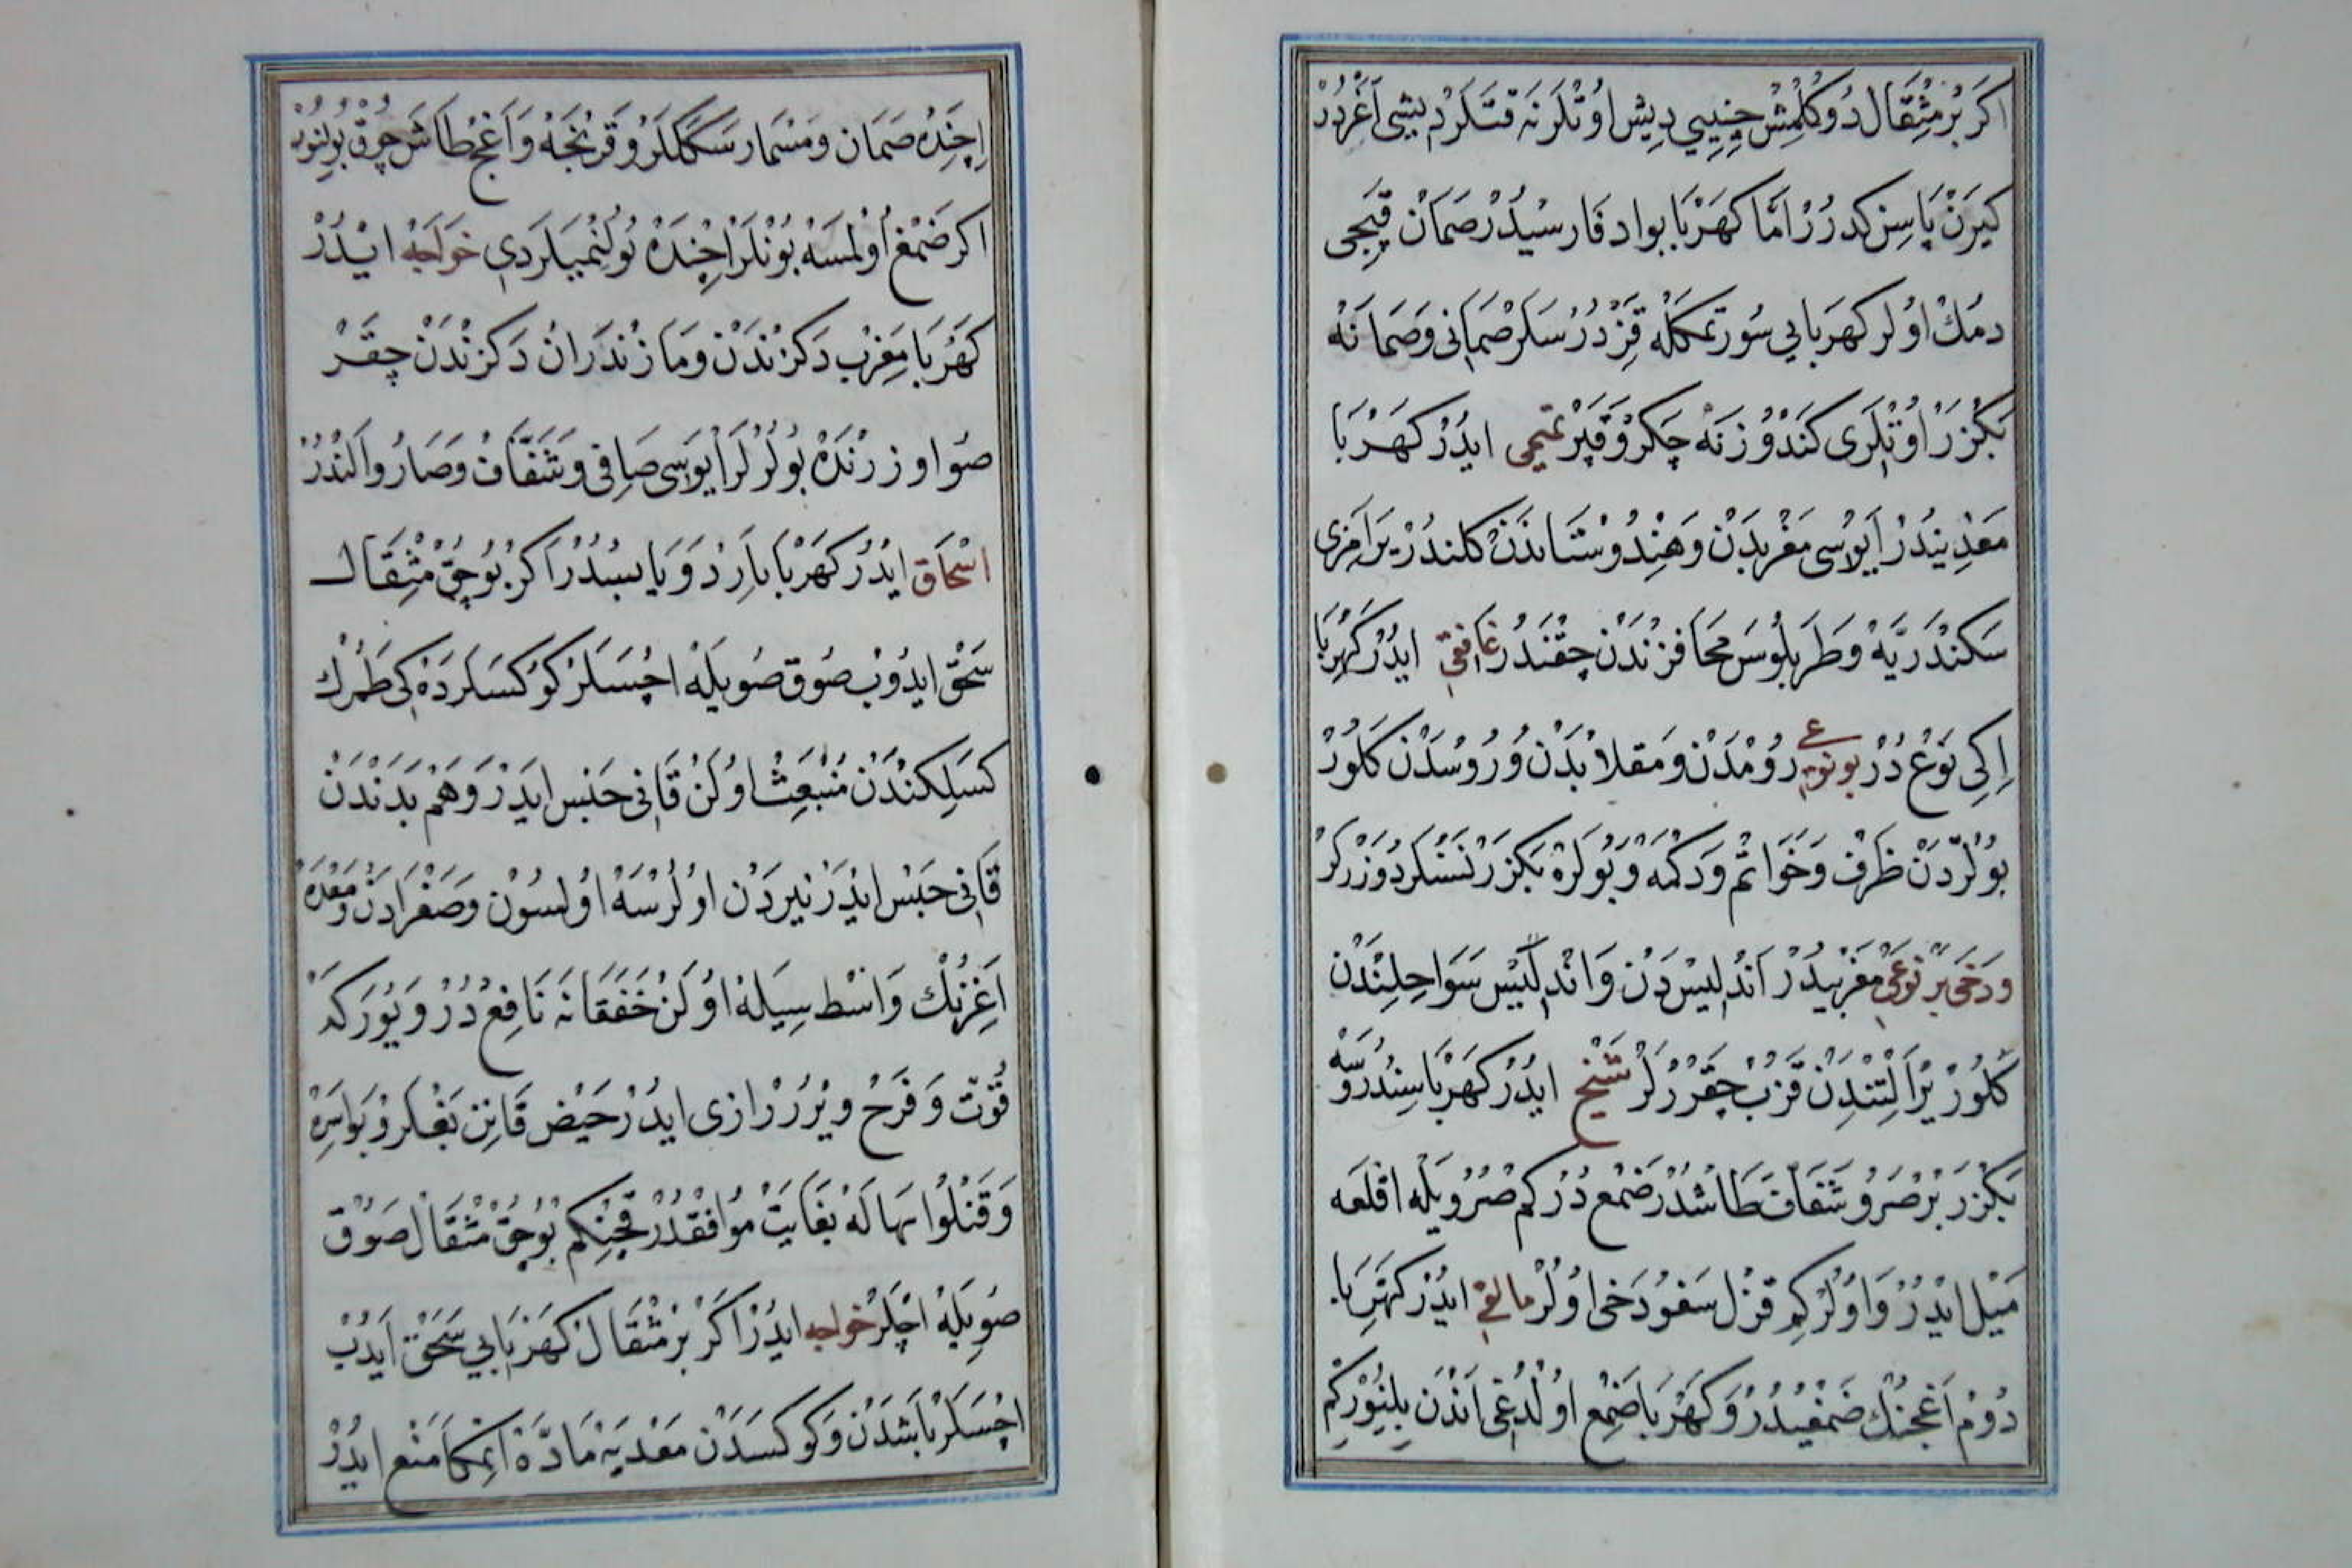 اكر بر مثقال دوكلمش جنیبي دیش اوتلرنه قتسلر دیشی آغردر
كیرن پاسن كدرر امّا كهربا بو اد فارسیدر صمان قپجی
دمك اولر كهربایي سورتمكله قزدرسلر صمانی وصمانه
بكزر اوتلری كندوزنه چكر وقپر تمیمی ایدر كهربا
معدنیدر ایوسی مغربدن وهندوستاندن كلندر یرامزی
سكندریه وطربلوس محافزندن چقندر غافقی ایدر كهربا
اكی نوع در بو نوعی رومدن ومقلابدن وروسدن كلور
بولردن ظرف وخواتم ودكمه وبولره بكزر نسنلر دوزرلر
ودخی بر نوعی مغربیدر اندلیسدن واندلیس سواحلندن
كلور یر التندن قزب چقررلر شیخ ایدر كهربا سندروسه
بكزر بر صرو شفاف طاشدر ضمغ در كم صرویله اقلغه
میل ایدر واولر كم قزل سغو دخی اولر مالقی ایدر كهربا
دوم اغجنك ضمغیدر وكهربا ضمغ اولدغی اندن بلنور كم
اچنده صمان ومسمار سككلر وقرنجه واغج طاش چوق بولنور
اكر ضمغ اولمسه بونلر اچنده بولنمیلردی خواجه ایدر
كهربا مغرب دكزندن ومازندران دكزندن چقر
صو اوزرنده بولرلر ایوسی صافی وشفّاف وصارو النددر
اسحاق ایدر كهربا بارد ویابسدر اكر بوچق مثقال
سحق ایدوب صوق صویله اچسلر كوكسلرده كی طمرك
كسلكندن منبعث اولن قانی حبس ایدر وهم بدندن
قانی حبس ایدر نیردن اولرسه اولسون وصفرادن ومعده
اغزنك واسطسیله اولن خفقانه نافع در ویوركه
قوّت وفرح ویرر رازی ایدر حیض قانن بغلر وبواسره
وقنلو اسهاله بغایت موافقدر قچنكم بوچق مثقال صوق
صویله اچلر خواجه ایدر اكر بر مثقال كهربایي سحق ایدب
اچسلر باشدن وكوكسدن معدیه مادّه انمكا منع ایدر